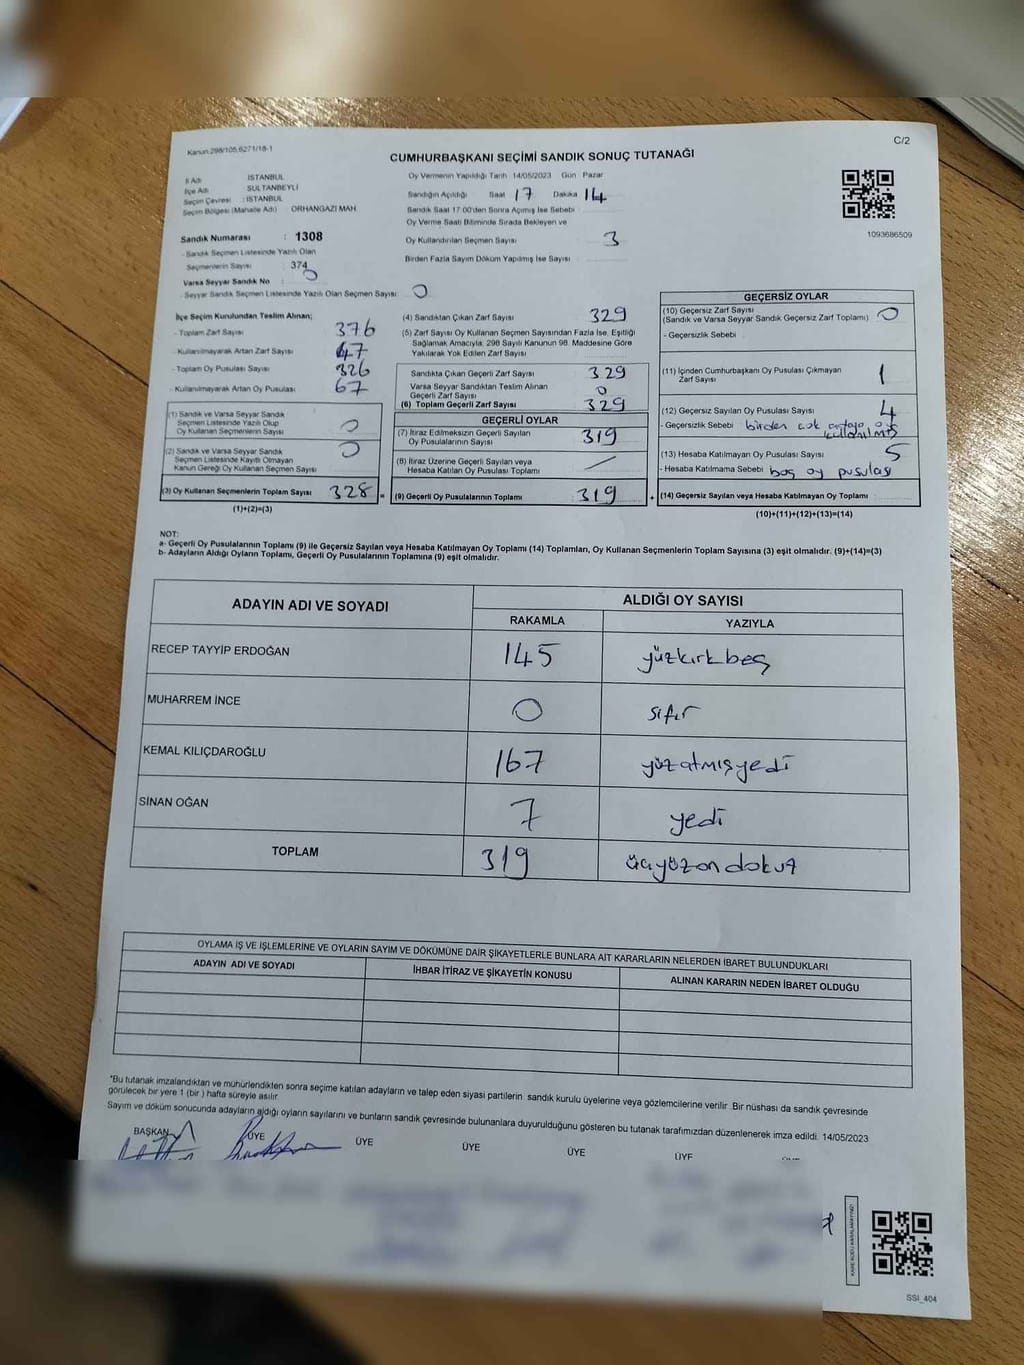 Kanun:298/105,6271/18-1
C/2
CUMHURBAŞKANI SEÇİMİ SANDIK SONUÇ TUTANAĞI
İl Adı : İSTANBUL
İlçe Adı : SULTANBEYLİ
Seçim Çevresi : İSTANBUL
Seçim Bölgesi (Mahalle Adı) : ORHANGAZİ MAH.
Sandık Numarası : 1308
- Sandık Seçmen Listesinde Yazılı Olan
Seçmenlerin Sayısı : 374
Varsa Seyyar Sandık No : 0
- Seyyar Sandık Seçmen Listesinde Yazılı Olan Seçmen Sayısı: 0
Oy Vermenin Yapıldığı Tarih 14/05/2023 Gün Pazar
Sandığın Açıldığı Saat 17 Dakika 14
Sandık Saat 17.00'den Sonra Açmış İse Sebebi
Oy Verme Saati Bitiminde Sırada Bekleyen ve
Oy Kullandırılan Seçmen Sayısı 3
Birden Fazla Sayım Döküm Yapılmış İse Sayısı
1093686509
İlçe Seçim Kurulundan Teslim Alınan;
- Toplam Zarf Sayısı 376
- Kullanılmayarak Artan Zarf Sayısı 47
- Toplam Oy Pusulası Sayısı 326
- Kullanılmayarak Artan Oy Pusulası 67
(1) Sandık ve Varsa Seyyar Sandık
Seçmen Listesinde Yazılı Olup
Oy Kullanan Seçmenlerin Sayısı 0
(2) Sandık ve Varsa Seyyar Sandık
Seçmen Listesinde Kayıtlı Olmayan
Kanun Gereği Oy Kullanan Seçmen Sayısı 0
(3) Oy Kullanan Seçmenlerin Toplam Sayısı 328 =
(1)+(2)=(3)
(4) Sandıktan Çıkan Zarf Sayısı 329
(5) Zarf Sayısı Oy Kullanan Seçmen Sayısından Fazla İse, Eşitliği
Sağlamak Amacıyla, 298 Sayılı Kanunun 98. Maddesine Göre
Yakılarak Yok Edilen Zarf Sayısı
Sandıkta Çıkan Geçerli Zarf Sayısı 329
Varsa Seyyar Sandıktan Teslim Alınan
Geçerli Zarf Sayısı 0
(6) Toplam Geçerli Zarf Sayısı 329
GEÇERLİ OYLAR
(7) İtiraz Edilmeksizin Geçerli Sayılan
Oy Pusulalarının Sayısı 319
(8) İtiraz Üzerine Geçerli Sayılan veya
Hesaba Katılan Oy Pusulası Toplamı /
(9) Geçerli Oy Pusulalarının Toplamı 319 +
GEÇERSİZ OYLAR
(10) Geçersiz Zarf Sayısı
(Sandık ve Varsa Seyyar Sandık Geçersiz Zarf Toplamı) 0
- Geçersizlik Sebebi
(11) İçinden Cumhurbaşkanı Oy Pusulası Çıkmayan
Zarf Sayısı 1
(12) Geçersiz Sayılan Oy Pusulası Sayısı 4
- Geçersizlik Sebebi birden çok adaya oy
kullanılmış
(13) Hesaba Katılmayan Oy Pusulası Sayısı 5
- Hesaba Katılmama Sebebi boş oy pusulası
(14) Geçersiz Sayılan veya Hesaba Katılmayan Oy Toplamı
(10)+(11)+(12)+(13)=(14)
NOT:
a- Geçerli Oy Pusulalarının Toplamı (9) ile Geçersiz Sayılan veya Hesaba Katılmayan Oy Toplamı (14) Toplamları, Oy Kullanan Seçmenlerin Toplam Sayısına (3) eşit olmalıdır. (9)+(14)=(3)
b- Adayların Aldığı Oyların Toplamı, Geçerli Oy Pusulalarının Toplamına (9) eşit olmalıdır.
ADAYIN ADI VE SOYADI ALDIĞI OY SAYISI
RAKAMLA YAZIYLA
RECEP TAYYİP ERDOĞAN 145 yüzkırkbeş
MUHARREM İNCE 0 sıfır
KEMAL KILIÇDAROĞLU 167 yüzatmışyedi
SİNAN OĞAN 7 yedi
TOPLAM 319 üçyüzondokuz
OYLAMA İŞ VE İŞLEMLERİNE VE OYLARIN SAYIM VE DÖKÜMÜNE DAİR ŞİKAYETLERLE BUNLARA AİT KARARLARIN NELERDEN İBARET BULUNDUKLARI
ADAYIN ADI VE SOYADI İHBAR İTİRAZ VE ŞİKAYETİN KONUSU ALINAN KARARIN NEDEN İBARET OLDUĞU
*Bu tutanak imzalandıktan ve mühürlendikten sonra seçime katılan adayların ve talep eden siyasi partilerin sandık kurulu üyelerine veya gözlemcilerine verilir. Bir nüshası da sandık çevresinde
görülecek bir yere 1 (bir) hafta süreyle asılır.
Sayım ve döküm sonucunda adayların aldığı oyların sayılarını ve bunların sandık çevresinde bulunanlara duyurulduğunu gösteren bu tutanak tarafımızdan düzenlenerek imza edildi. 14/05/2023
BAŞKAN ÜYE ÜYE ÜYE ÜYE ÜYE
SSI_404